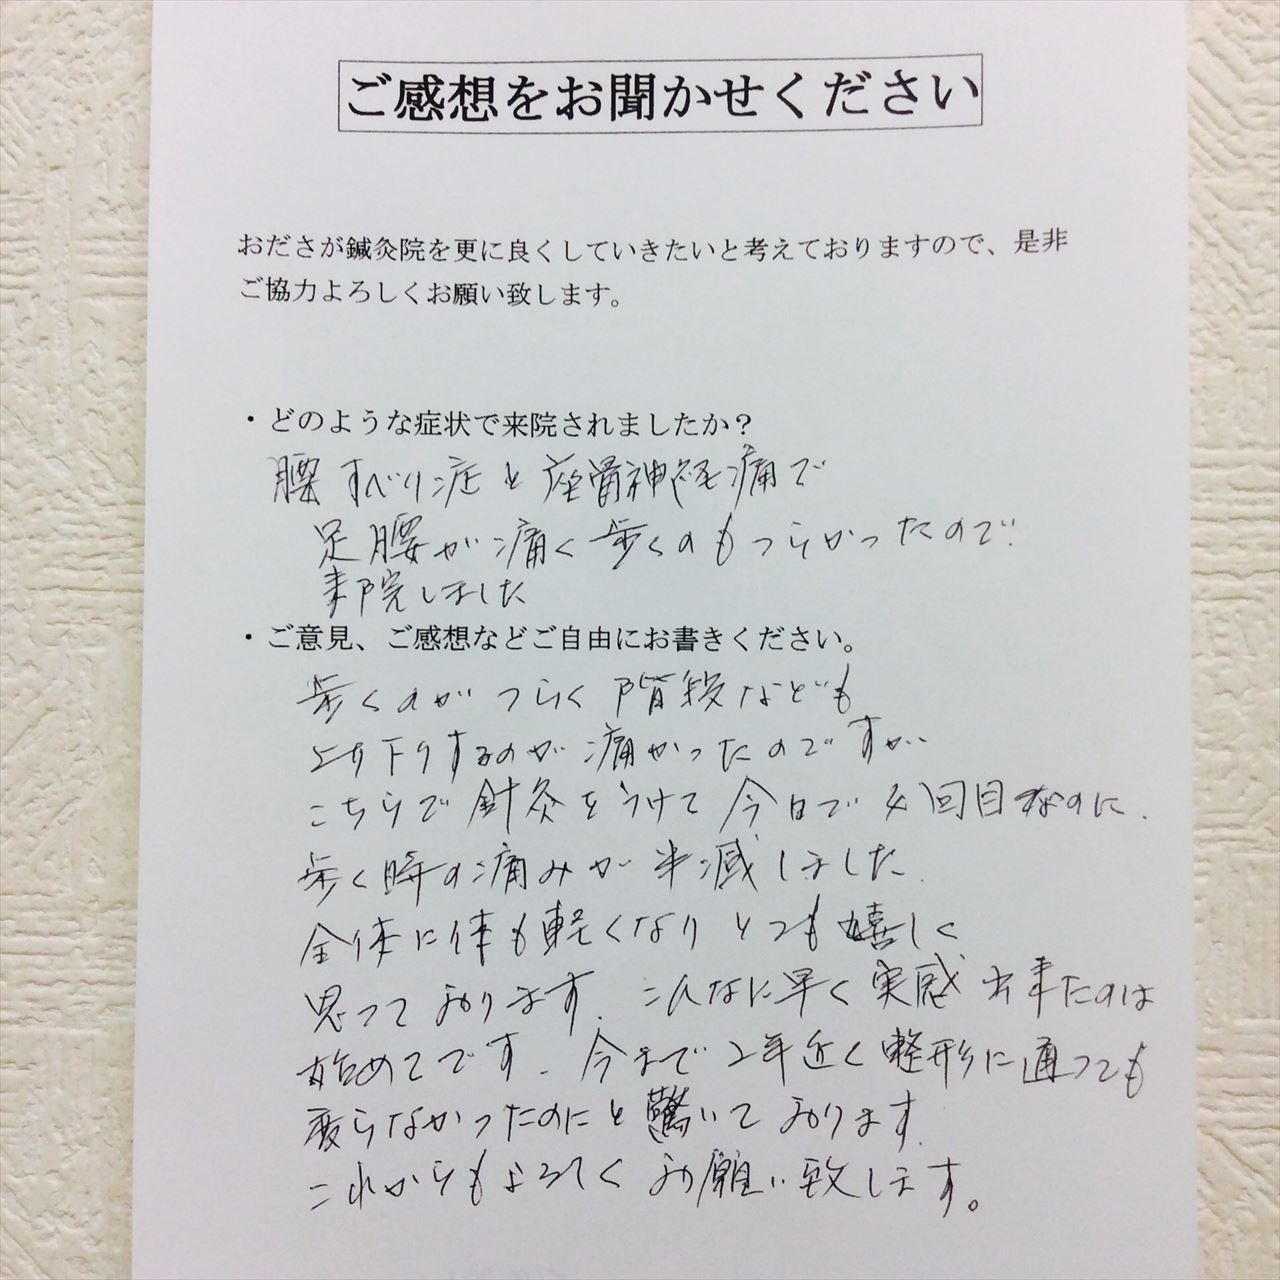 ご感想をお聞かせください
おださが鍼灸院を更に良くしていきたいと考えておりますので、是非
ご協力よろしくお願い致します。
・どのような症状で来院されましたか？
腰すべり症と座骨神経痛で
足腰が痛く歩くのもつらかったので
来院しました
・ご意見、ご感想などご自由にお書きください。
歩くのがつらく階段なども
上り下りするのが痛かったのですが
こちらで針灸をうけて今日で4回目なのに、
歩く時の痛みが半減しました。
全体に体も軽くなりとても嬉しく
思っております。こんなに早く実感出来たのは
始めてです。今まで2年近く整形に通っても
変らなかったのにと驚いております。
これからもよろしくお願い致します。